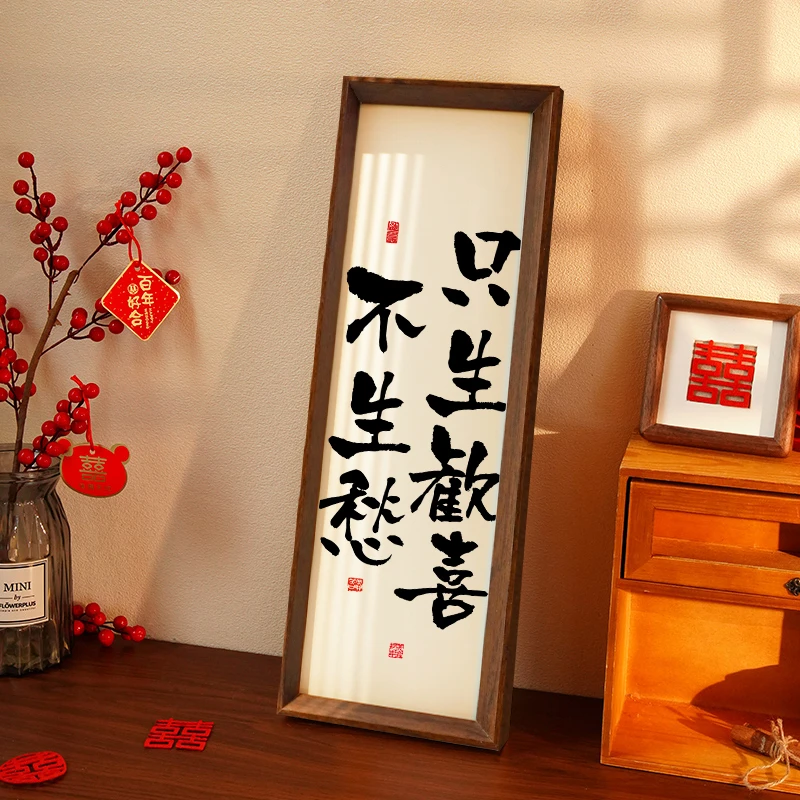 只生歡喜
不生愁
百年
好合
囍
囍
囍
MINI
by
FLOWERPLUS